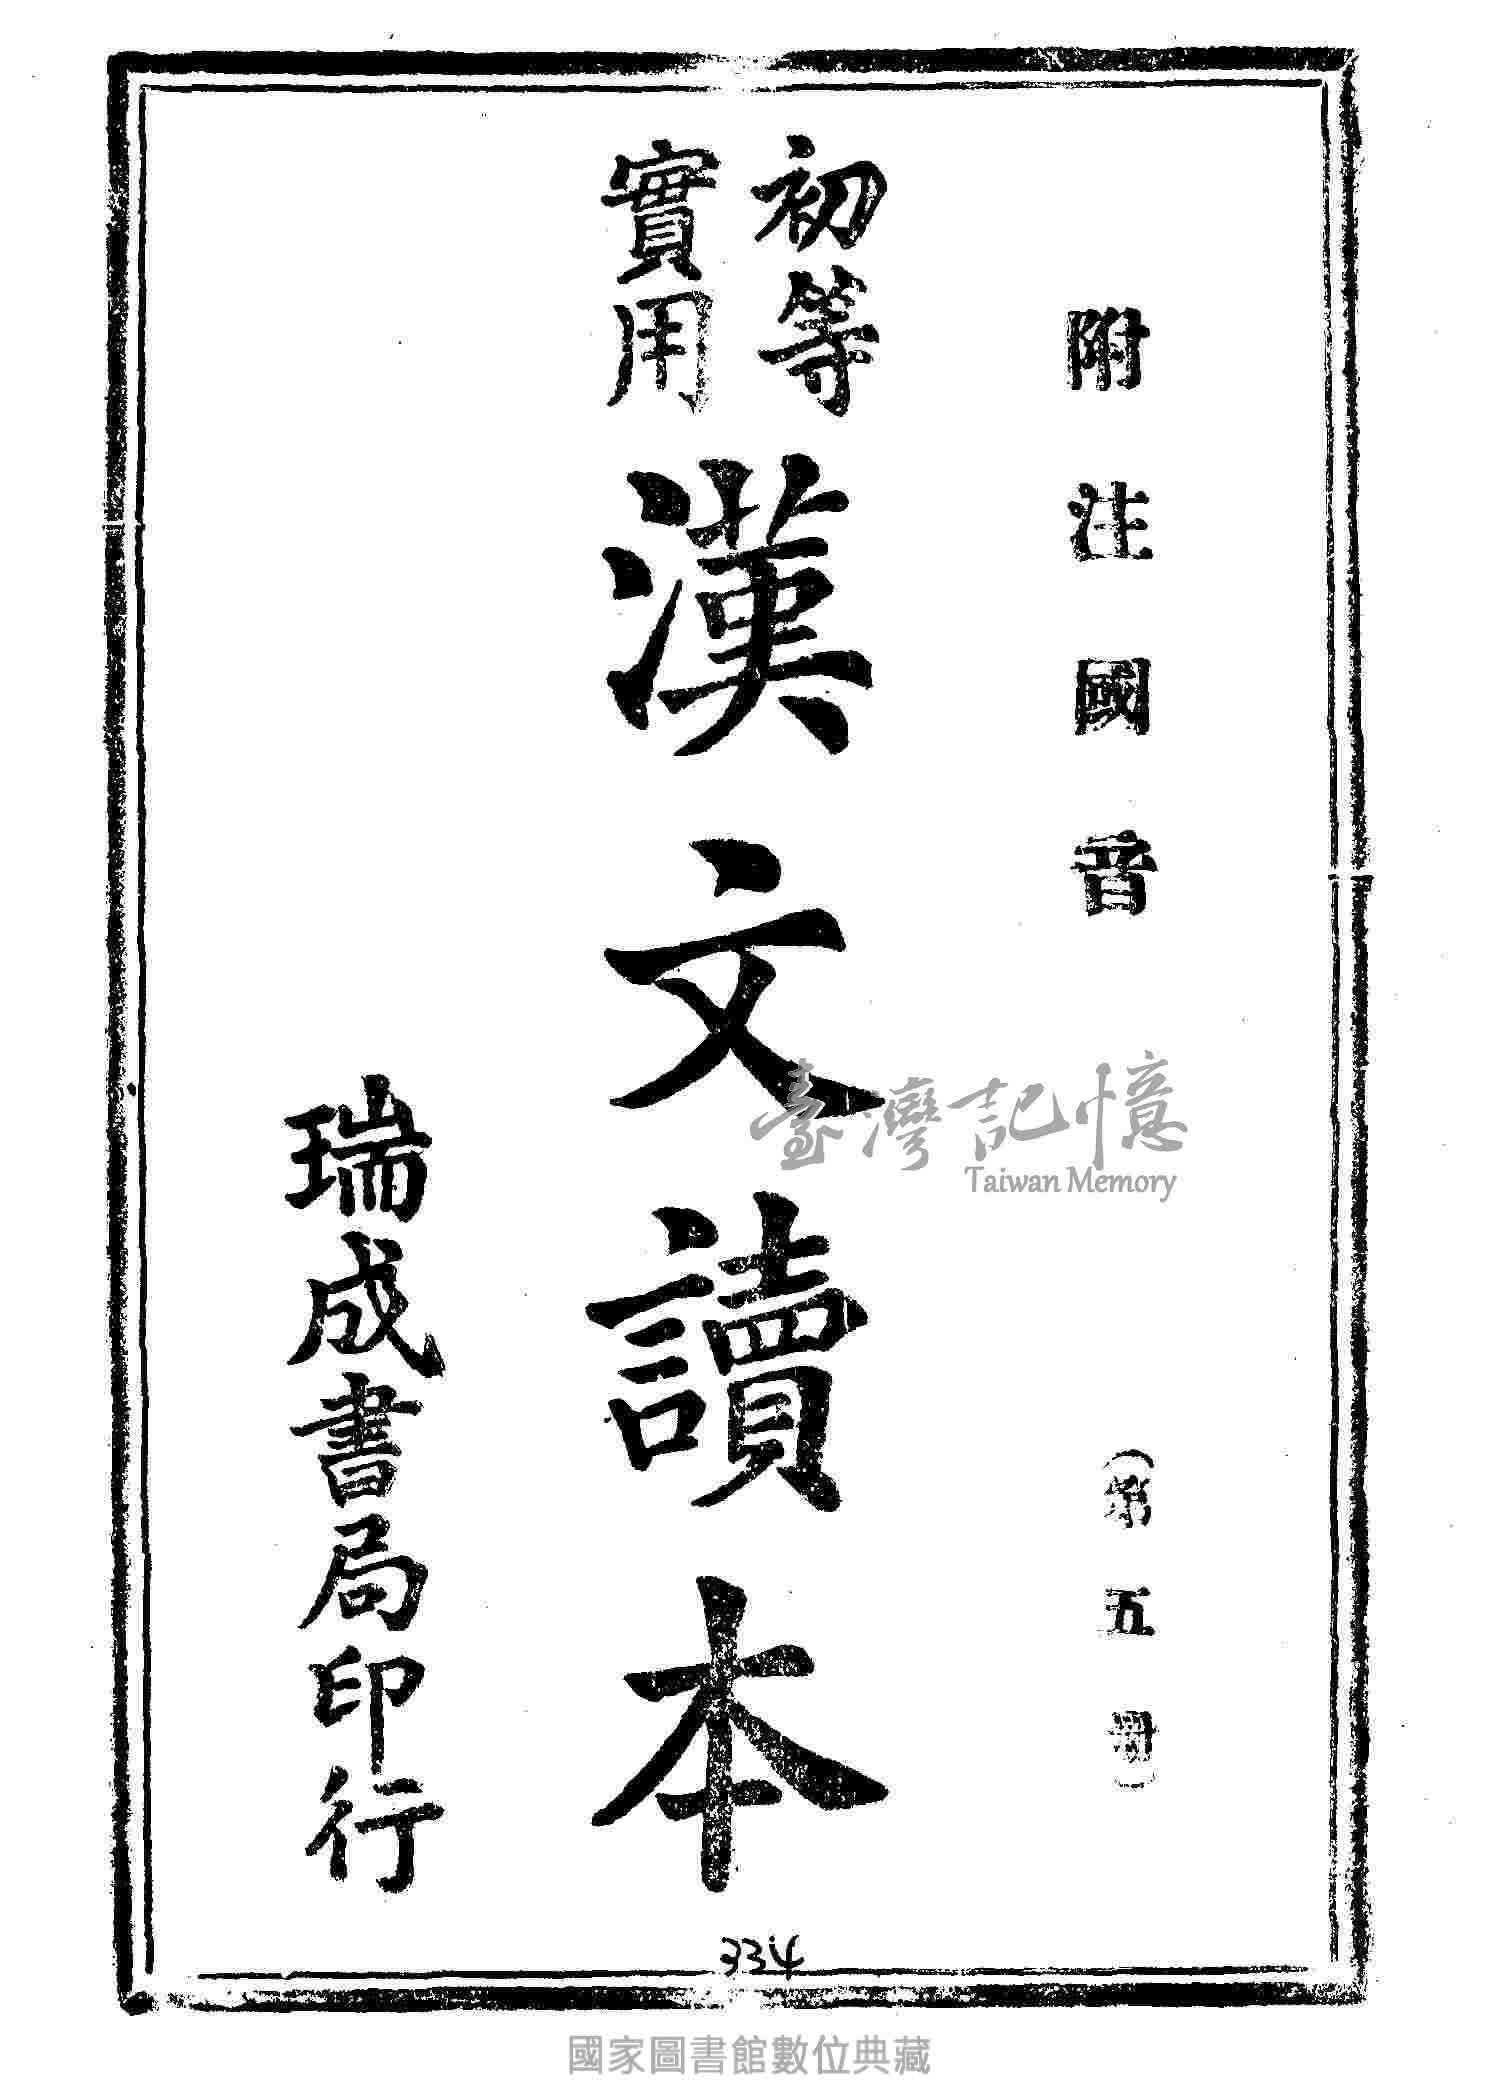 附注國音
(第五冊)
初等
實用
漢文讀本
瑞成書局印行
臺灣記憶
Taiwan Memory
334
國家圖書館數位典藏